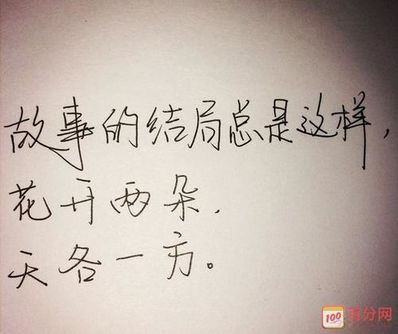 故事的结局总是这样,
花开两朵.
天各一方。
100
百分网